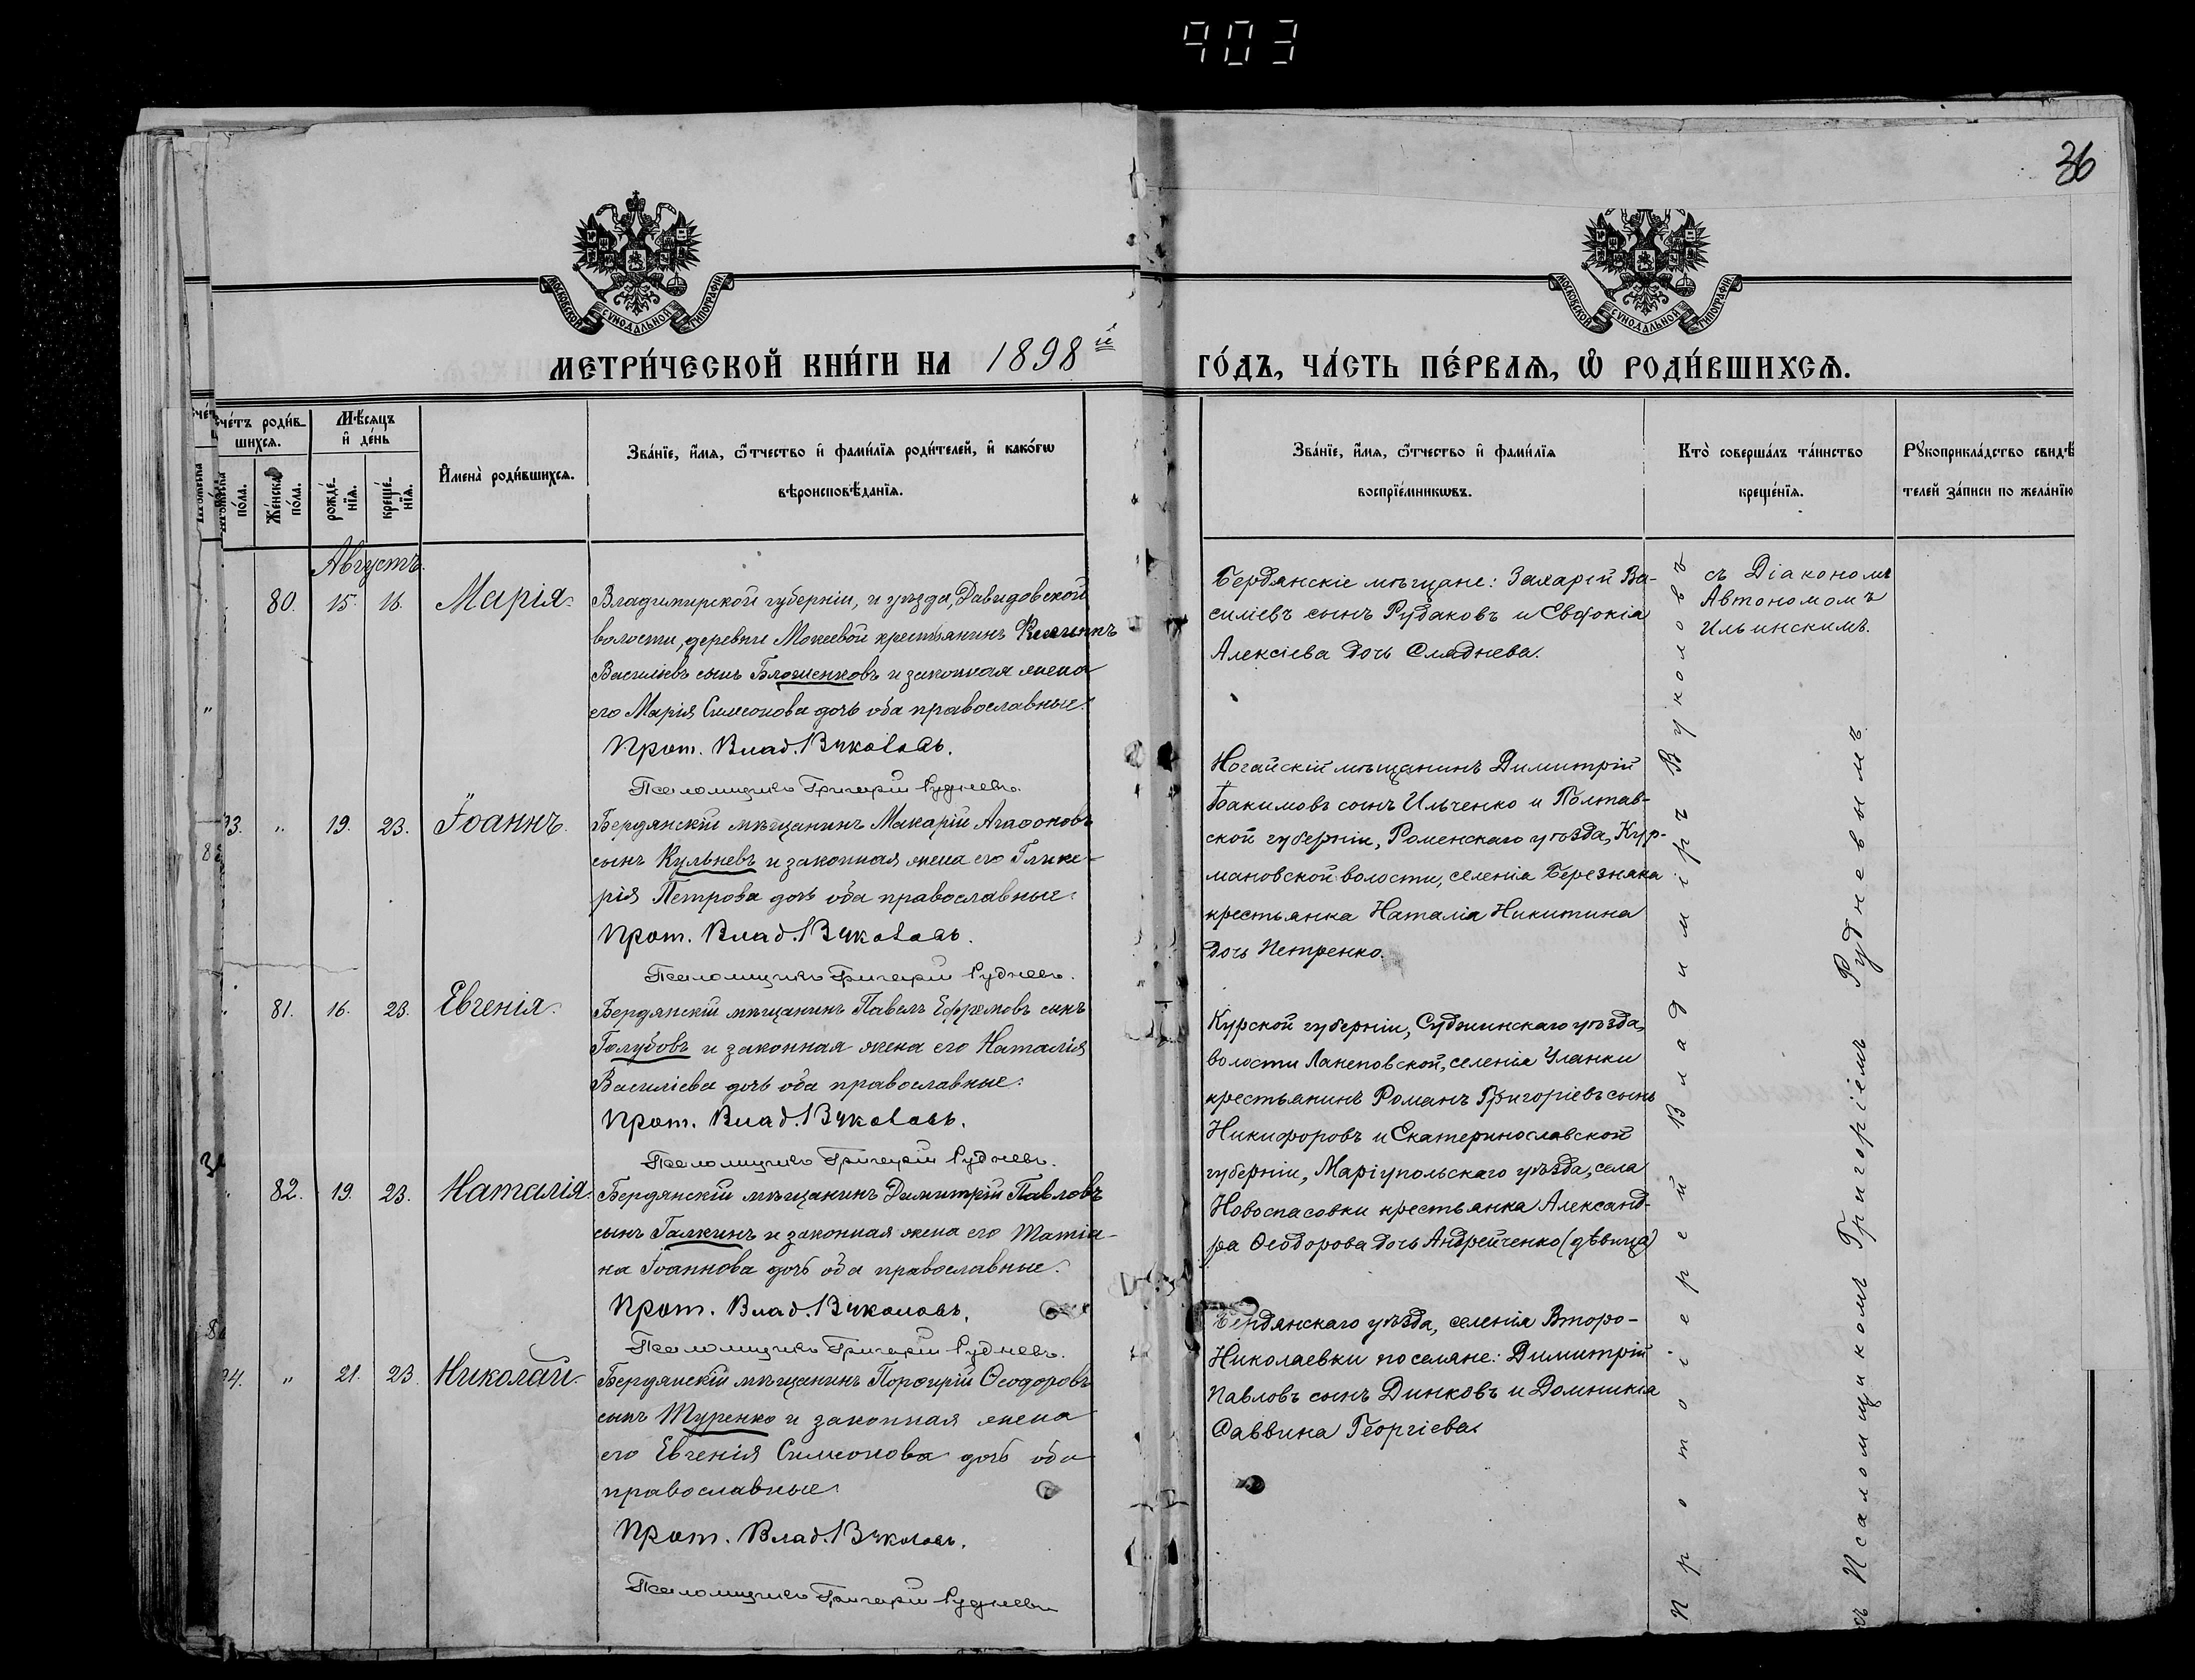 903
36
МОСКОВСКОЙ СѴНОДАЛЬНОЙ ТИПОГРАФІИ
МОСКОВСКОЙ СѴНОДАЛЬНОЙ ТИПОГРАФІИ
МЕТРИ́ЧЕСКОЙ КНИ́ГИ НА 1898й
ГО́ДЪ, ЧА́СТЬ ПЕ́РВАѦ, Ѡ҆ РОДИ́ВШИХСѦ.
Сче́тъ роди́в-
шихсѧ.
Мѣ́сѧцъ
и҆ де́нь
Мужеска
по́ла.
Же́нска
по́ла.
рожде́-
нїѧ.
креще́-
нїѧ.
И҆мена̀ роди́вшихсѧ.
Зва́нїе, и҆́мѧ, ѻ҆́тчество и҆ фами́лїѧ роди́телей, и҆ како́гѡ
вѣроисповѣ́данїѧ.
Зва́нїе, и҆́мѧ, ѻ҆́тчество и҆ фами́лїѧ
воспрїе́мникѡвъ.
Кто̀ соверша́лъ та́инство
креще́нїѧ.
Рꙋкоприкла́дство свидѣ́
телей за́писи по жела́нїю
Августъ.
80. 15. 16. Марія.
Владимирской губерніи, и уѣзда, Давидовской
волости, деревни Мокеевой крестьянинъ
Василіевъ сынъ Блошенковъ и законная жена
его Марія Симеонова дочь оба православные.
Прот. Влад. Вуколовъ.
Псаломщикъ Григорій Рудневъ.
Бердянскіе мѣщане: Захарій Ва-
силіевъ сынъ Рудаковъ и Евдокія
Алексіева дочь Сляднева.
съ Діакономъ
Автономомъ
Ильинскимъ.
93. " 19. 23. Іоаннъ.
Бердянскій мѣщанинъ Макарій Агаѳоновъ
сынъ Кульневъ и законная жена его Глике-
рія Петрова дочь оба православные.
Прот. Влад. Вуколовъ.
Псаломщикъ Григорій Рудневъ.
Ногайскій мѣщанинъ Димитрій
Іоакимовъ сынъ Ильченко и Полтав-
ской губерніи, Роменскаго уѣзда, Кур-
мановской волости, селенія Березняка
крестьянка Наталія Никитина
дочь Петренко.
81. 16. 23. Евгенія.
Бердянскій мѣщанинъ Павелъ Ефремовъ сынъ
Голубовъ и законная жена его Наталія
Василіева дочь оба православные.
Прот. Влад. Вуколовъ.
Псаломщикъ Григорій Рудневъ.
Курской губерніи, Суджинскаго уѣзда,
волости селенія Уланки
крестьянинъ Романъ Григоріевъ сынъ
Никифоровъ и Екатеринославской
губерніи, Маріупольскаго уѣзда, села
Новоспасовки крестьянка Александ-
ра Ѳеодорова дочь Андрейченко (дѣвица)
82. 19. 23. Наталія.
Бердянскій мѣщанинъ Димитрій Павловъ
сынъ Галкинъ и законная жена его Татіа-
на Іоаннова дочь оба православные.
Прот. Влад. Вуколовъ.
Псаломщикъ Григорій Рудневъ.
Бердянскаго уѣзда, селенія Второ-
Николаевки поселяне: Димитрій
Павловъ сынъ Динковъ и Домникія
Саввина Георгіева.
94. " 21. 23. Николай.
Бердянскій мѣщанинъ Порфирій Ѳеодоровъ
сынъ Туренко и законная жена
его Евгенія Симеонова дочь оба
православные.
Прот. Влад. Вуколовъ.
Псаломщикъ Григорій Рудневъ
Протоіерей Владимиръ Вуколовъ
съ Псаломщикомъ Григоріемъ Рудневымъ.